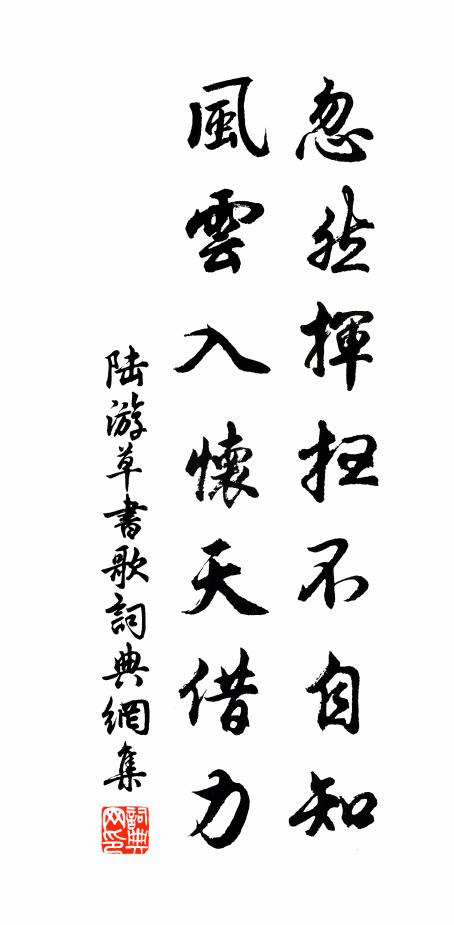 忽然揮扫不自知
風雲入懷天借力
陆游草書歌詞典網集
詞典
网印